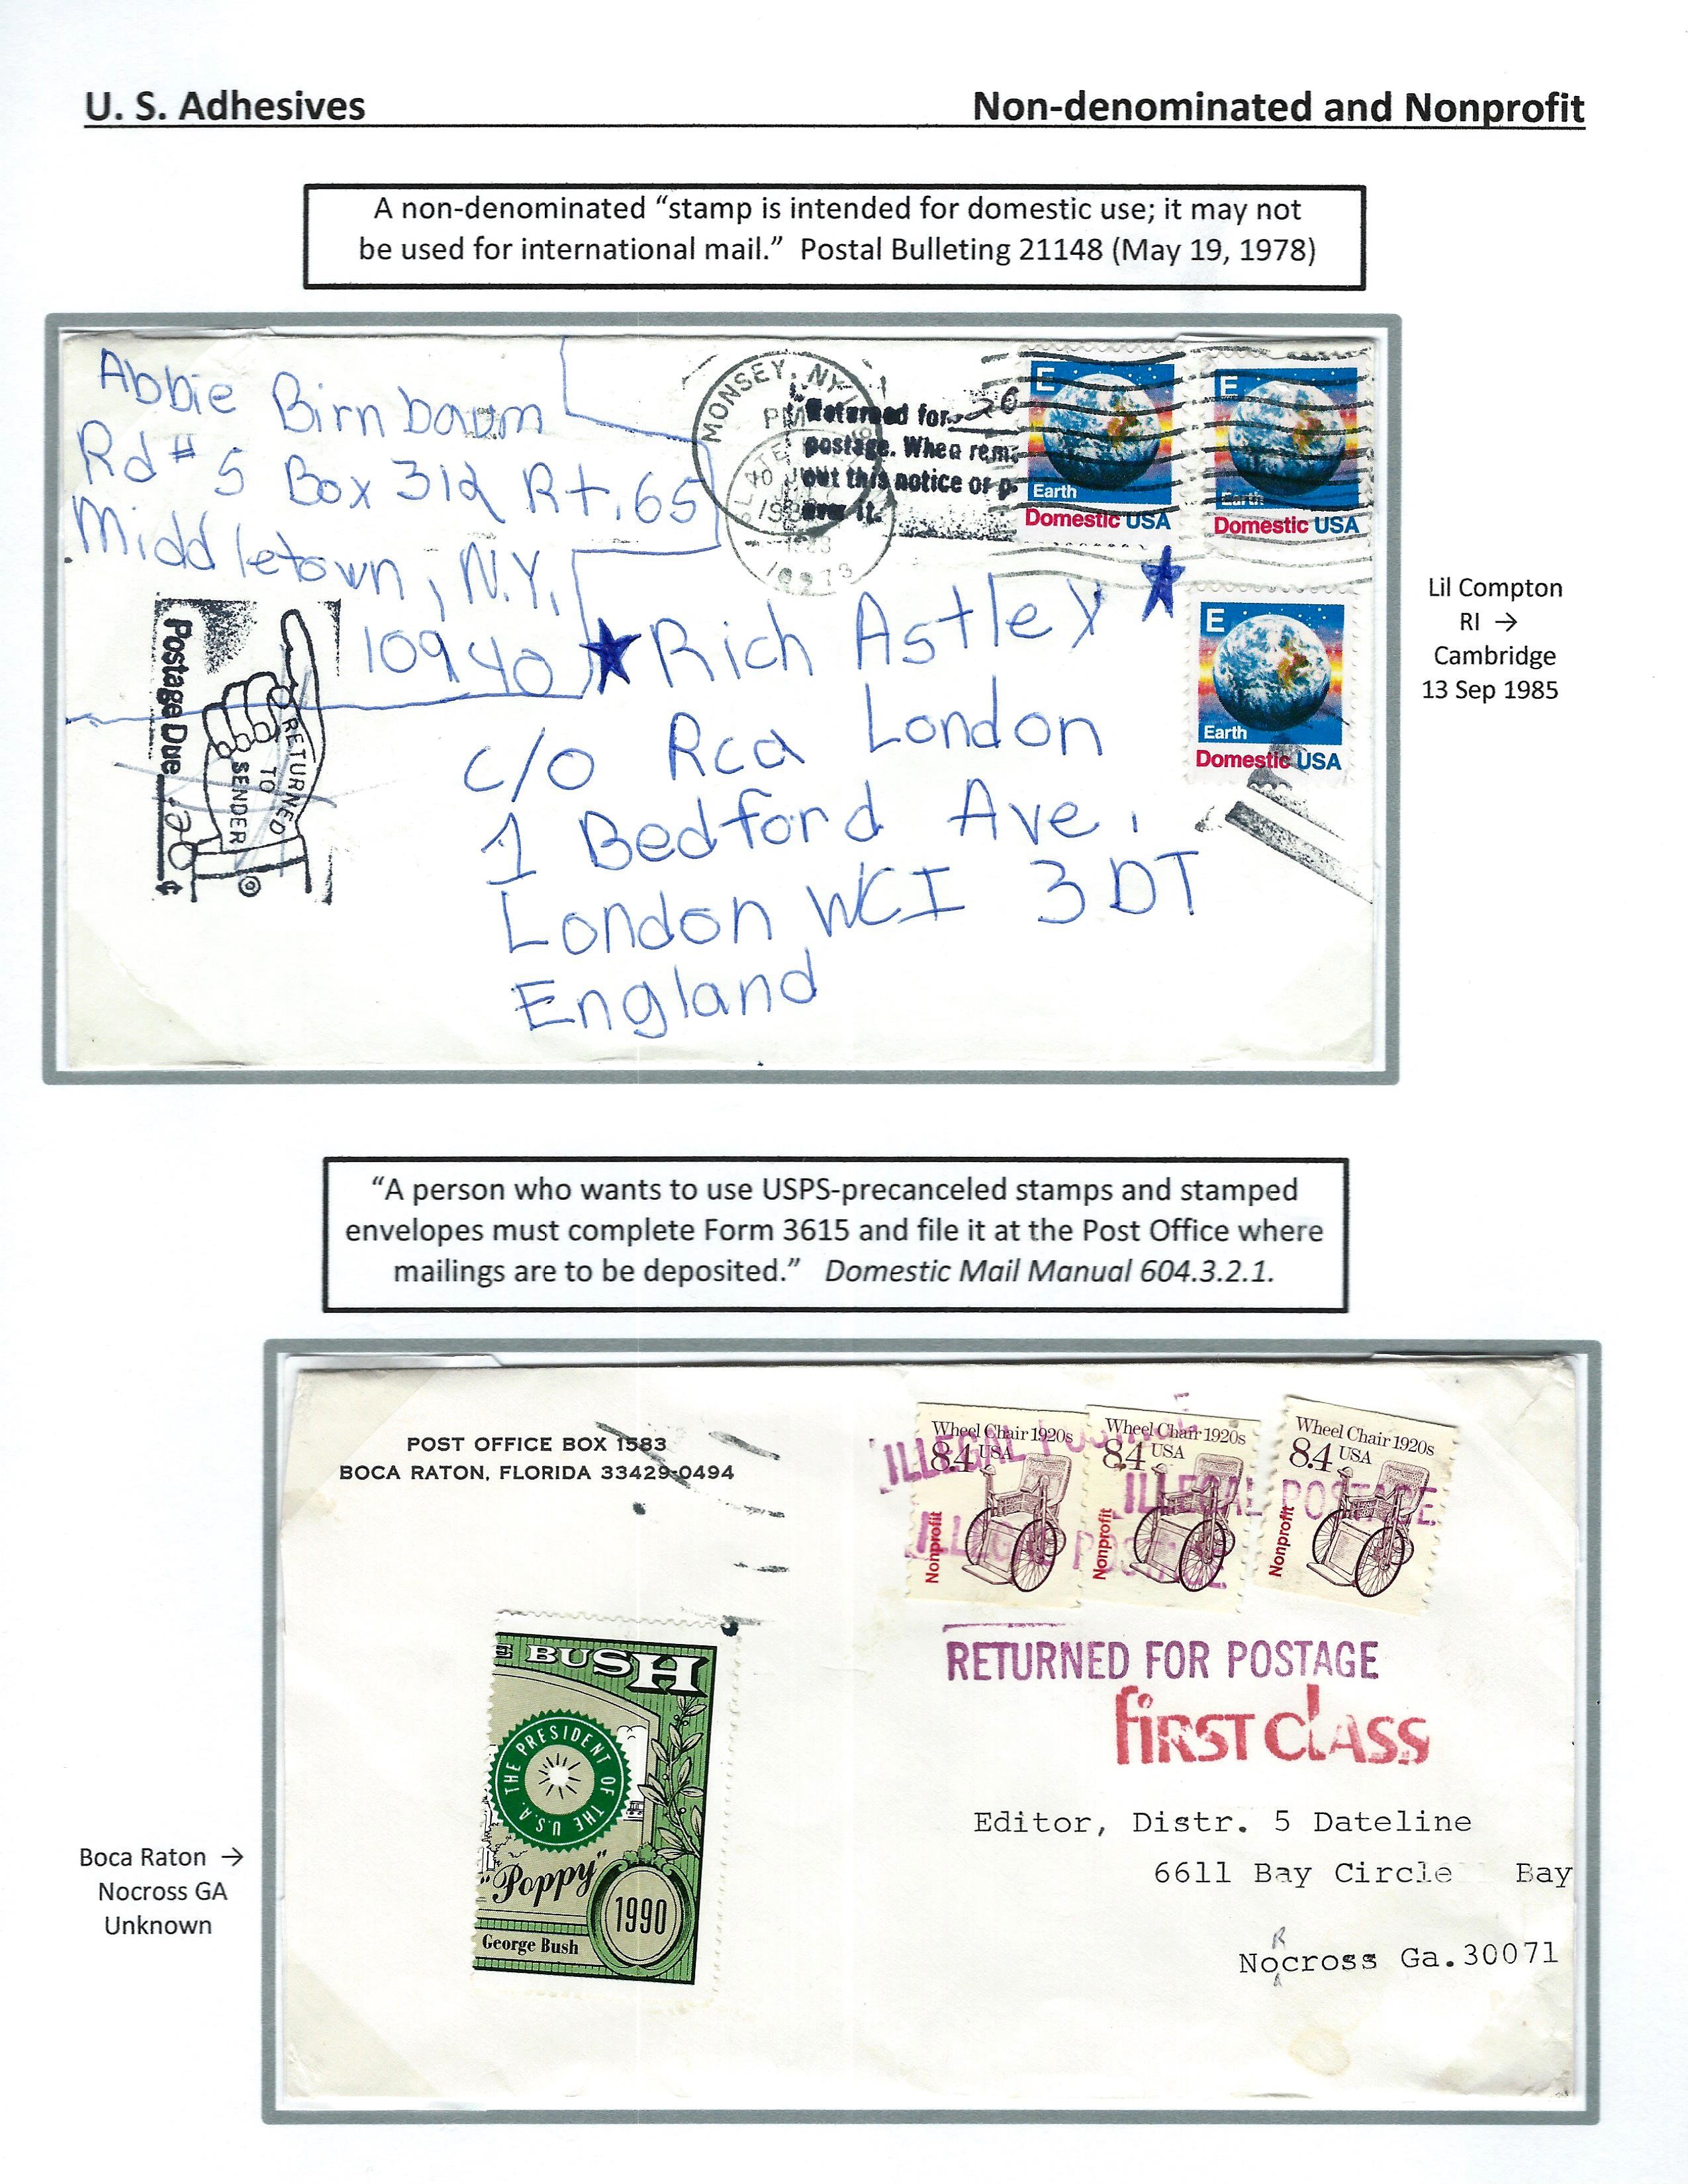 U. S. Adhesives
Non-denominated and Nonprofit
A non-denominated “stamp is intended for domestic use; it may not
be used for international mail.” Postal Bulleting 21148 (May 19, 1978)
Abbie Birnbaum
Rd # 5 Box 312 Rt. 65
Middletown, N.Y.
10940
MONSEY, NY
PM
1988
10973
Returned for 20
postage. When rem
out this notice or p
over it.
E
Earth
Domestic USA
E
Earth
Domestic USA
E
Earth
Domestic USA
Postage Due 20 ¢
RETURNED
TO
SENDER
Rich Astley
c/o Rca London
1 Bedford Ave.
London WCI 3DT
England
Lil Compton
RI →
Cambridge
13 Sep 1985
“A person who wants to use USPS-precanceled stamps and stamped
envelopes must complete Form 3615 and file it at the Post Office where
mailings are to be deposited.” Domestic Mail Manual 604.3.2.1.
POST OFFICE BOX 1583
BOCA RATON, FLORIDA 33429-0494
Wheel Chair 1920s
8.4 USA
Nonprofit
Wheel Chair 1920s
8.4 USA
Nonprofit
Wheel Chair 1920s
8.4 USA
Nonprofit
ILLEGAL POSTAGE
ILLEGAL POSTAGE
ILLEGAL POSTAGE
RETURNED FOR POSTAGE
FIRST CLASS
E BUSH
THE PRESIDENT OF THE U.S.A.
"Poppy"
1990
George Bush
Editor, Distr. 5 Dateline
6611 Bay Circle Bay
R
Nocross Ga.30071
Boca Raton →
Nocross GA
Unknown